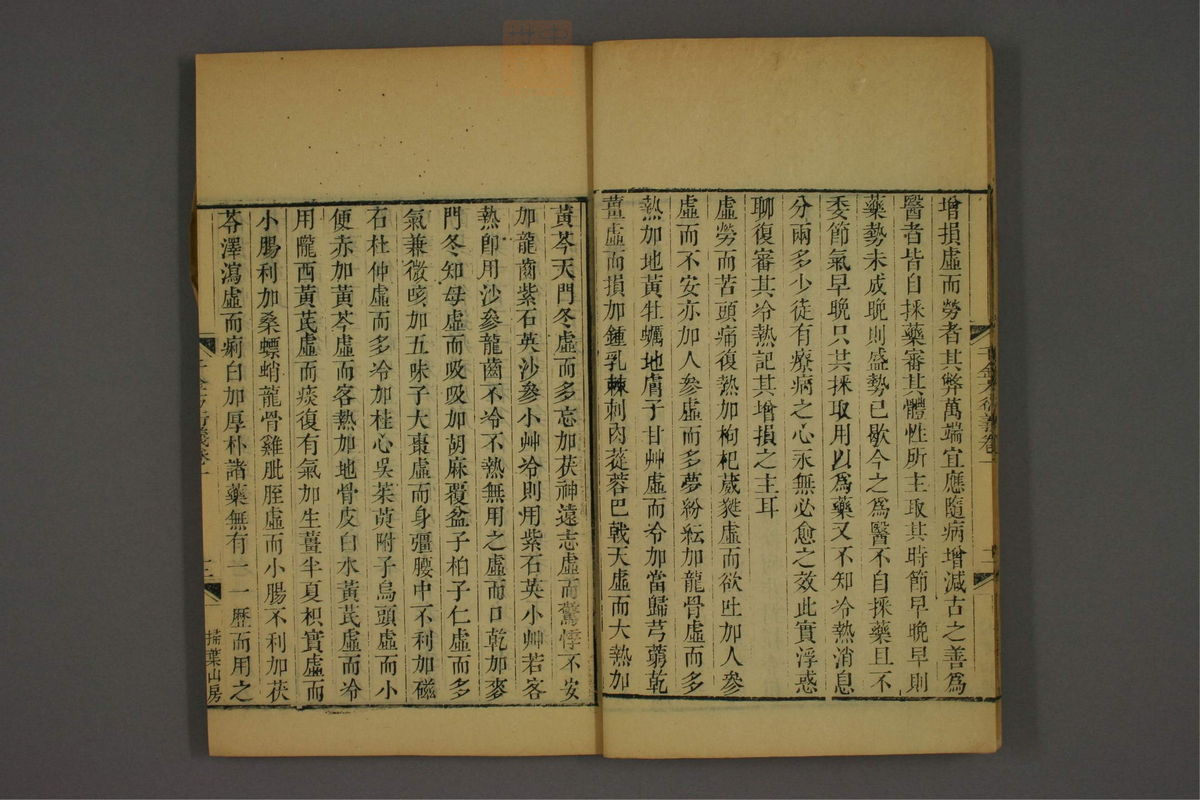 增損虛而勞者其弊萬端宜應隨病增減古之善爲
醫者皆自採藥審其體性所主取其時節早晚早則
藥勢未成晚則盛勢已歇今之爲醫不自採藥且不
委節氣早晚只共採取用以爲藥又不知冷熱消息
分兩多少徒有療病之心永無必愈之效此實浮惑
聊復審其冷熱記其增損之主耳
虛勞而苦頭痛復熱加枸杞葳蕤虛而欲吐加人參
虛而不安亦加人參虛而多夢紛紜加龍骨虛而多
熱加地黃牡蠣地膚子甘艸虛而冷加當歸芎藭乾
薑虛而損加鍾乳棘刺肉蓯蓉巴戟天虛而大熱加
黃芩天門冬虛而多忘加茯神遠志虛而驚悸不安
加龍齒紫石英沙參小艸冷則用紫石英小艸若客
熱卽用沙參龍齒不冷不熱無用之虛而口乾加麥
門冬知母虛而吸吸加胡麻覆盆子柏子仁虛而多
氣兼微咳加五味子大棗虛而身彊腰中不利加磁
石杜仲虛而多冷加桂心吳茱萸附子烏頭虛而小
便赤加黃芩虛而客熱加地骨皮白水黃茋虛而冷
用隴西黃茋虛而痰復有氣加生薑半夏枳實虛而
小腸利加桑螵蛸龍骨雞肶胵虛而小腸不利加茯
苓澤瀉虛而痢白加厚朴諸藥無有一一歷而用之
千金方衍義卷一
二
掃葉山房